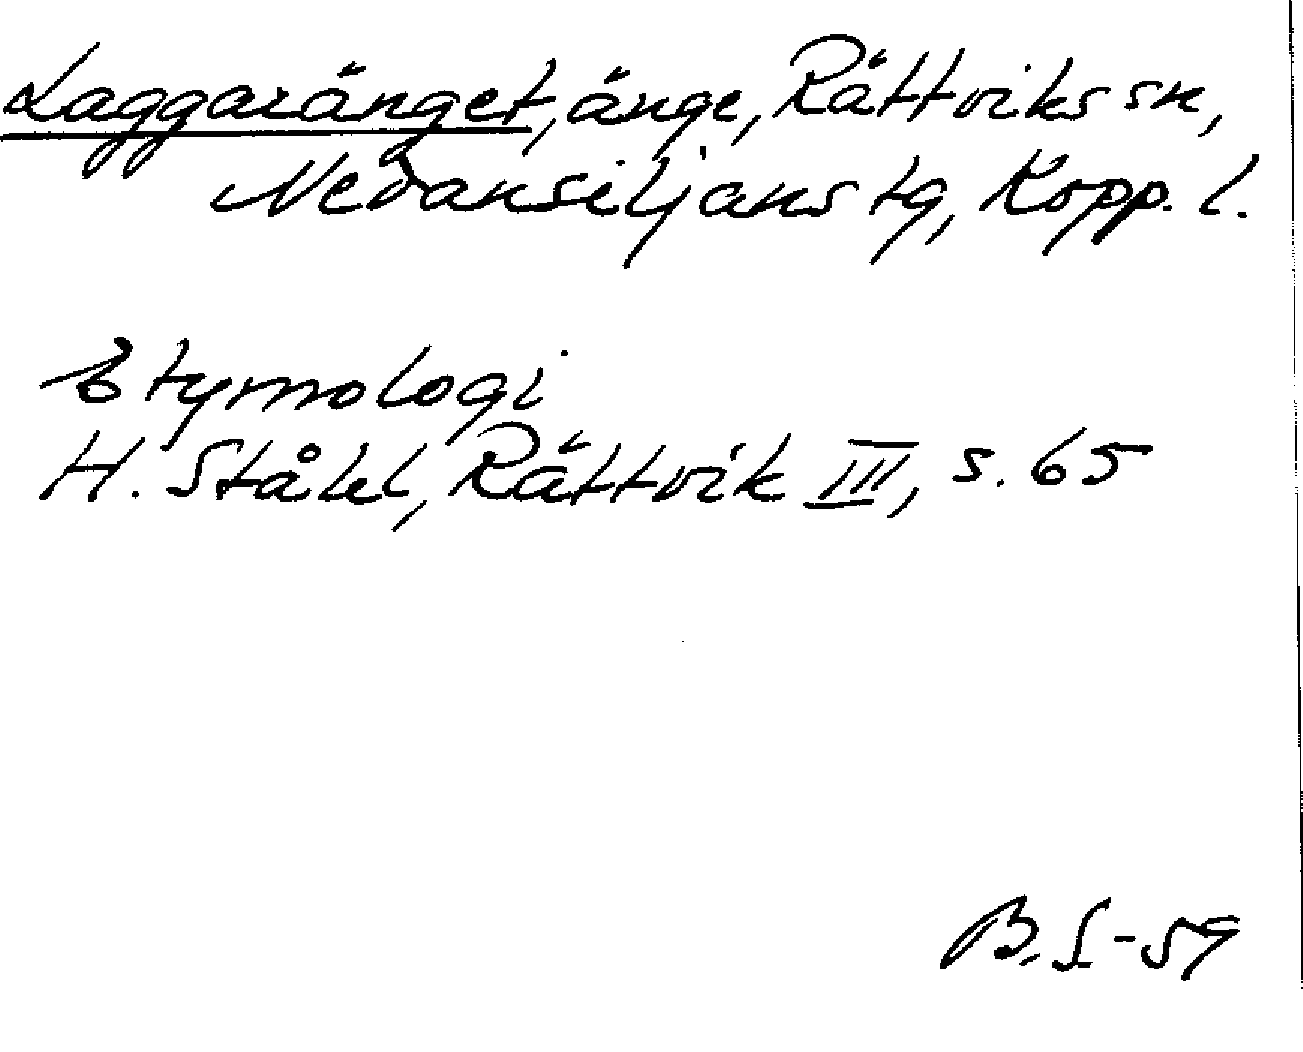 Laggaränget, änge, Rättviks sn,
Nedansiljans tg, Kopp. l.
Etymologi
H. Ståhl, Rättvik III, s. 65
B. L-59